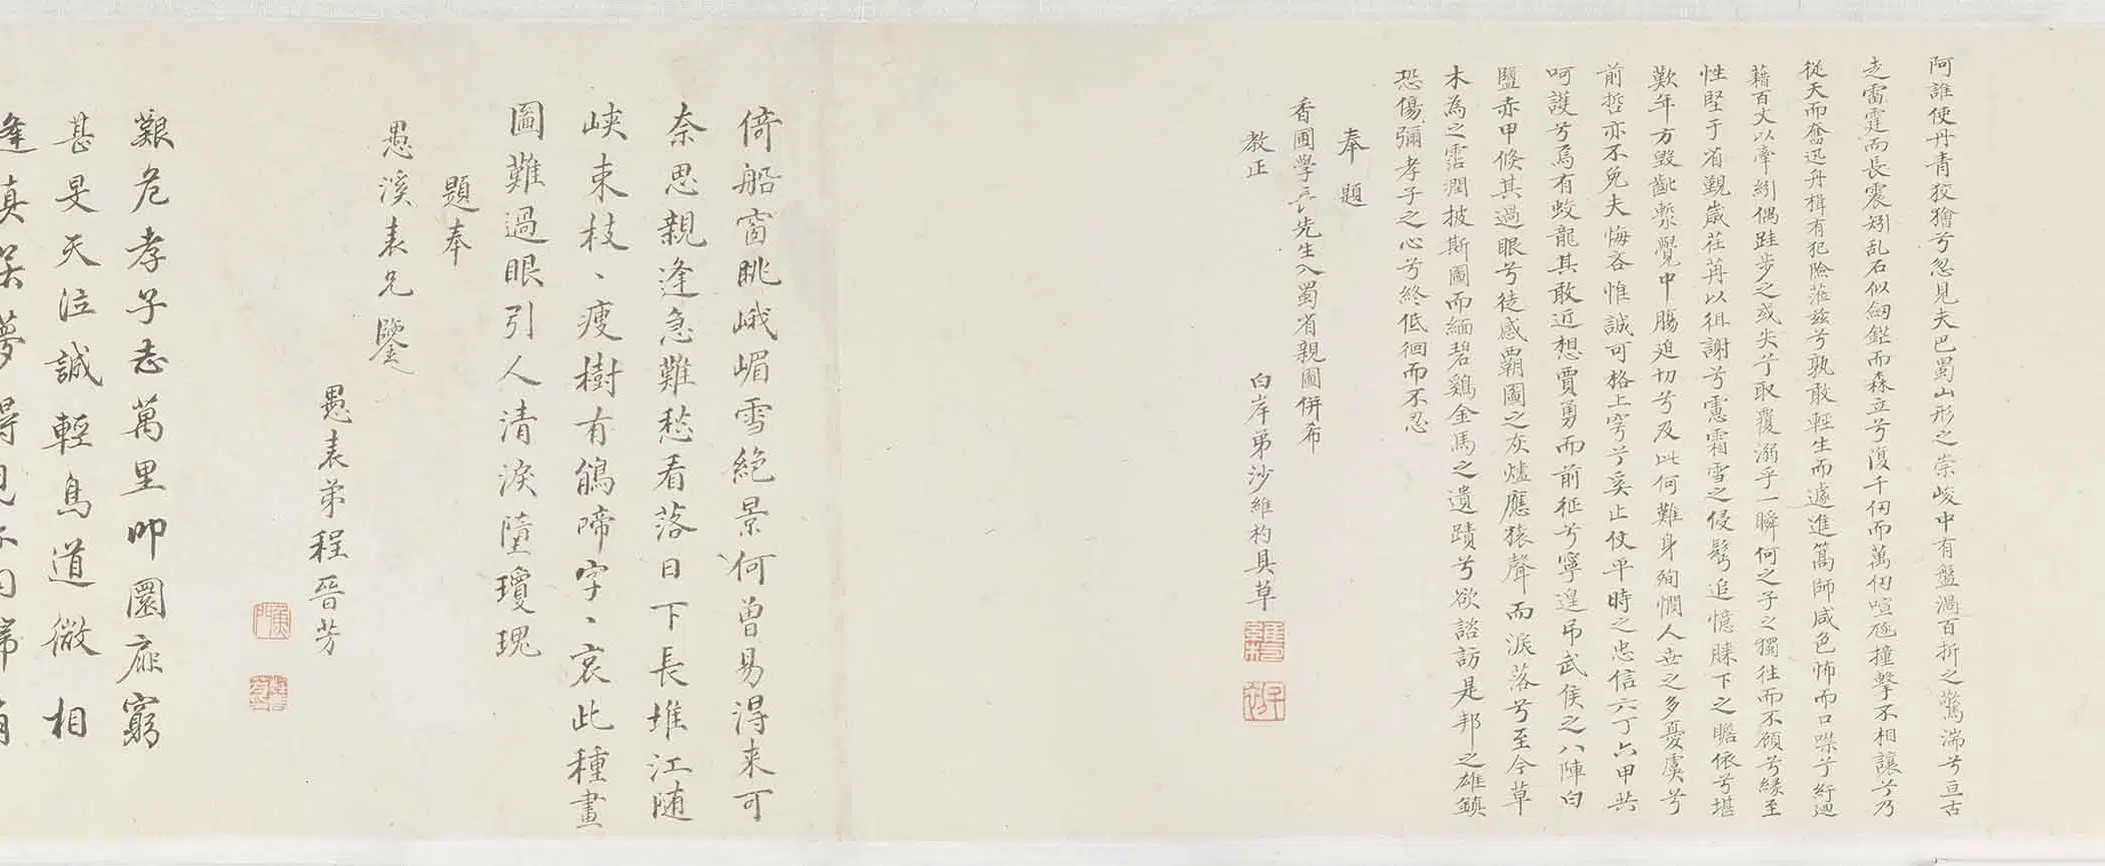 阿誰使丹青狡獪兮忽見夫巴蜀山形之崇峻中有盤渦百折之驚湍兮亘古
走雷霆而長震矧乱石似劔鋩而森立兮復千仞而萬仞喧豗撞擊不相讓兮乃
從天而奮迅舟楫有犯險蒞兹兮孰敢輕生而遽進篙師咸色怖而口噤兮紆迴
藉百丈以牽紉偶跬步之或失兮取覆溺乎一瞬何之子之獨往而不顧兮緣至
性堅于省覲歲荏苒以徂謝兮驚霜雪之侵髩追憶膝下之瞻依兮堪
歎年方毀齔慙覺中腸迫切兮及此何難身殉憫人世之多憂虞兮
前哲亦不免夫悔吝惟誠可格上穹兮奚止仗平時之忠信六丁六甲共
呵護兮焉有蛟龍其敢近想賈勇而前征兮寧遑吊武侯之八陣白
鹽赤甲倏其過眼兮徒感霸圖之灰燼應猿聲而淚落兮至今草
木為之霑潤披斯圖而緬碧鷄金馬之遺蹟兮欲諮訪是邦之雄鎮
恐傷彌孝子之心兮終低徊而不忍
奉題
香圃學長先生入蜀省親圖併希
教正
白岸弟沙維杓具草
倚船窗眺峨嵋雪絶景何曾易得来可
奈思親逢急難愁看落日下長堆江随
峽束枝、瘦樹有鵑啼字、哀此種畫
圖難過眼引人清淚墮瓊瑰
題奉
愚溪表兄鑒
愚表弟程晉芳
艱危孝子志萬里叩圜扉窮
甚旻天泣誠輕鳥道微相